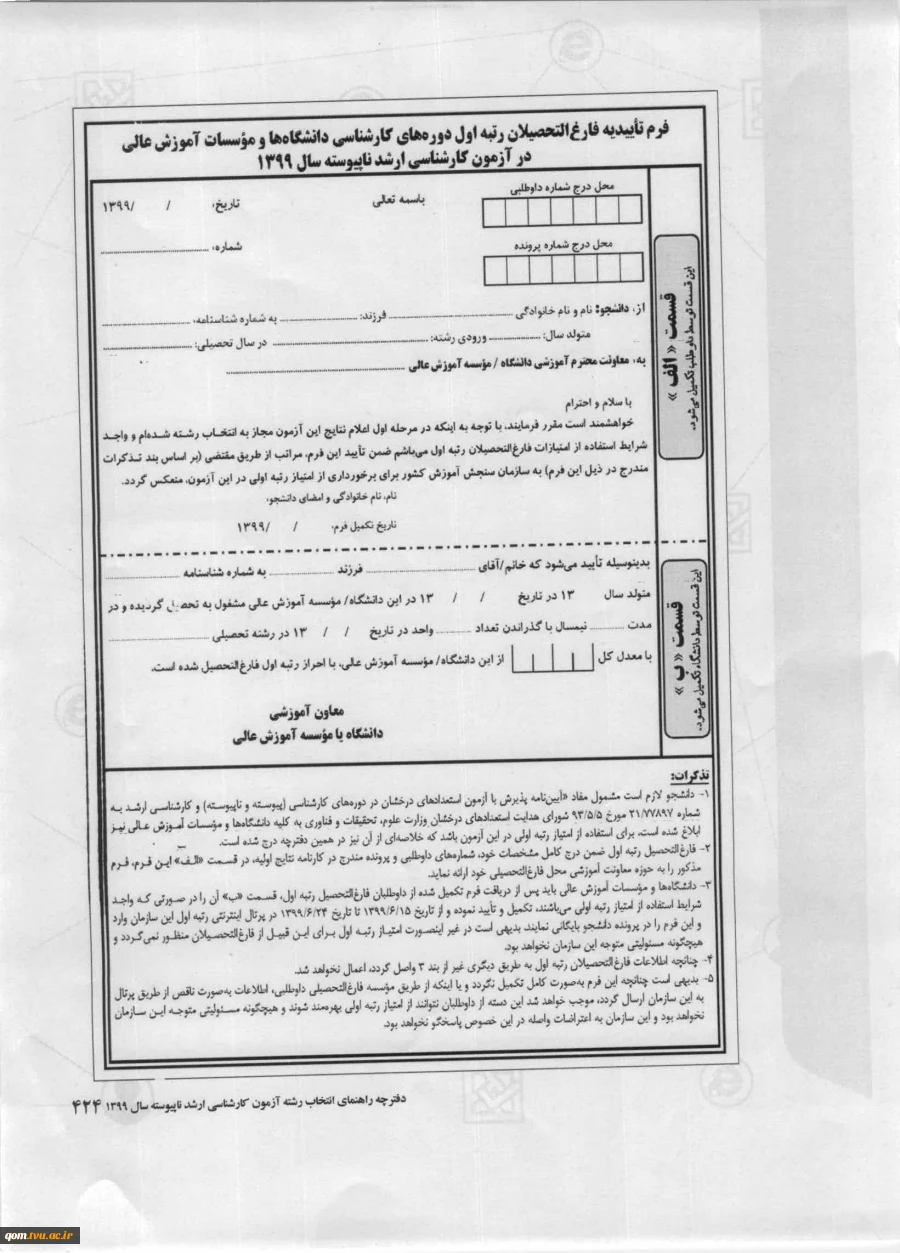 فرم تأییدیه فارغ‌التحصیلان رتبه اول دوره‌های کارشناسی دانشگاه‌ها و مؤسسات آموزش عالی
در آزمون کارشناسی ارشد ناپیوسته سال ۱۳۹۹
محل درج شماره داوطلبی
باسمه تعالی
تاریخ: / /۱۳۹۹
محل درج شماره پرونده
شماره:
قسمت « الف »
این قسمت توسط داوطلب تکمیل می‌شود.
از: دانشجو: نام و نام خانوادگی فرزند: به شماره شناسنامه:
متولد سال: ورودی رشته: در سال تحصیلی:
به: معاونت محترم آموزشی دانشگاه / مؤسسه آموزش عالی
با سلام و احترام
خواهشمند است مقرر فرمایند، با توجه به اینکه در مرحله اول اعلام نتایج این آزمون مجاز به انتخاب رشته شده‌ام و واجد
شرایط استفاده از امتیازات فارغ‌التحصیلان رتبه اول می‌باشم ضمن تأیید این فرم، مراتب از طریق مقتضی (بر اساس بند تذکرات
مندرج در ذیل این فرم) به سازمان سنجش آموزش کشور برای برخورداری از امتیاز رتبه اولی در این آزمون، منعکس گردد.
نام، نام خانوادگی و امضای دانشجو:
تاریخ تکمیل فرم: / /۱۳۹۹
قسمت «ب»
این قسمت توسط دانشگاه تکمیل می‌شود.
بدینوسیله تأیید می‌شود که خانم/آقای فرزند به شماره شناسنامه
متولد سال ۱۳ در تاریخ / / ۱۳ در این دانشگاه/ مؤسسه آموزش عالی مشغول به تحصیل گردیده و در
مدت نیمسال با گذراندن تعداد واحد در تاریخ / / ۱۳ در رشته تحصیلی
با معدل کل از این دانشگاه/ مؤسسه آموزش عالی، با احراز رتبه اول فارغ‌التحصیل شده است.
معاون آموزشی
دانشگاه یا مؤسسه آموزش عالی
تذکرات:
۱- دانشجو لازم است مشمول مفاد «آیین‌نامه پذیرش با آزمون استعدادهای درخشان در دوره‌های کارشناسی (پیوسته و ناپیوسته) و کارشناسی ارشد به
شماره ۲۱/۷۷۸۹۷ مورخ ۹۳/۵/۵ شورای هدایت استعدادهای درخشان وزارت علوم، تحقیقات و فناوری به کلیه دانشگاه‌ها و مؤسسات آموزش عالی نیز
ابلاغ شده است، برای استفاده از امتیاز رتبه اولی در این آزمون باشد که خلاصه‌ای از آن نیز در همین دفترچه درج شده است.
۲- فارغ‌التحصیل رتبه اول ضمن درج کامل مشخصات خود، شماره‌های داوطلبی و پرونده مندرج در کارنامه نتایج اولیه، در قسمت «الف» این فرم، فرم
مذکور را به حوزه معاونت آموزشی محل فارغ‌التحصیلی خود ارائه نماید.
۳- دانشگاه‌ها و مؤسسات آموزش عالی باید پس از دریافت فرم تکمیل شده از داوطلبان فارغ‌التحصیل رتبه اول، قسمت «ب» آن را در صورتی که واجد
شرایط استفاده از امتیاز رتبه اولی می‌باشند، تکمیل و تأیید نموده و از تاریخ ۱۳۹۹/۶/۱۵ تا تاریخ ۱۳۹۹/۶/۲۴ در پرتال اینترنتی رتبه اول این سازمان وارد
و این فرم را در پرونده دانشجو بایگانی نمایند. بدیهی است در غیر اینصورت امتیاز رتبه اول برای این قبیل از فارغ‌التحصیلان منظور نمی‌گردد و
هیچگونه مسئولیتی متوجه این سازمان نخواهد بود.
۴- چنانچه اطلاعات فارغ‌التحصیلان رتبه اول به طریق دیگری غیر از بند ۳ واصل گردد، اعمال نخواهد شد.
۵- بدیهی است چنانچه این فرم به‌صورت کامل تکمیل نگردد و یا اینکه از طریق مؤسسه فارغ‌التحصیلی داوطلبی، اطلاعات به‌صورت ناقص از طریق پرتال
به این سازمان ارسال گردد، موجب خواهد شد این دسته از داوطلبان نتوانند از امتیاز رتبه اولی بهره‌مند شوند و هیچگونه مسئولیتی متوجه این سازمان
نخواهد بود و این سازمان به اعتراضات واصله در این خصوص پاسخگو نخواهد بود.
دفترچه راهنمای انتخاب رشته آزمون کارشناسی ارشد ناپیوسته سال ۱۳۹۹ ۴۲۴
qom.tvu.ac.ir